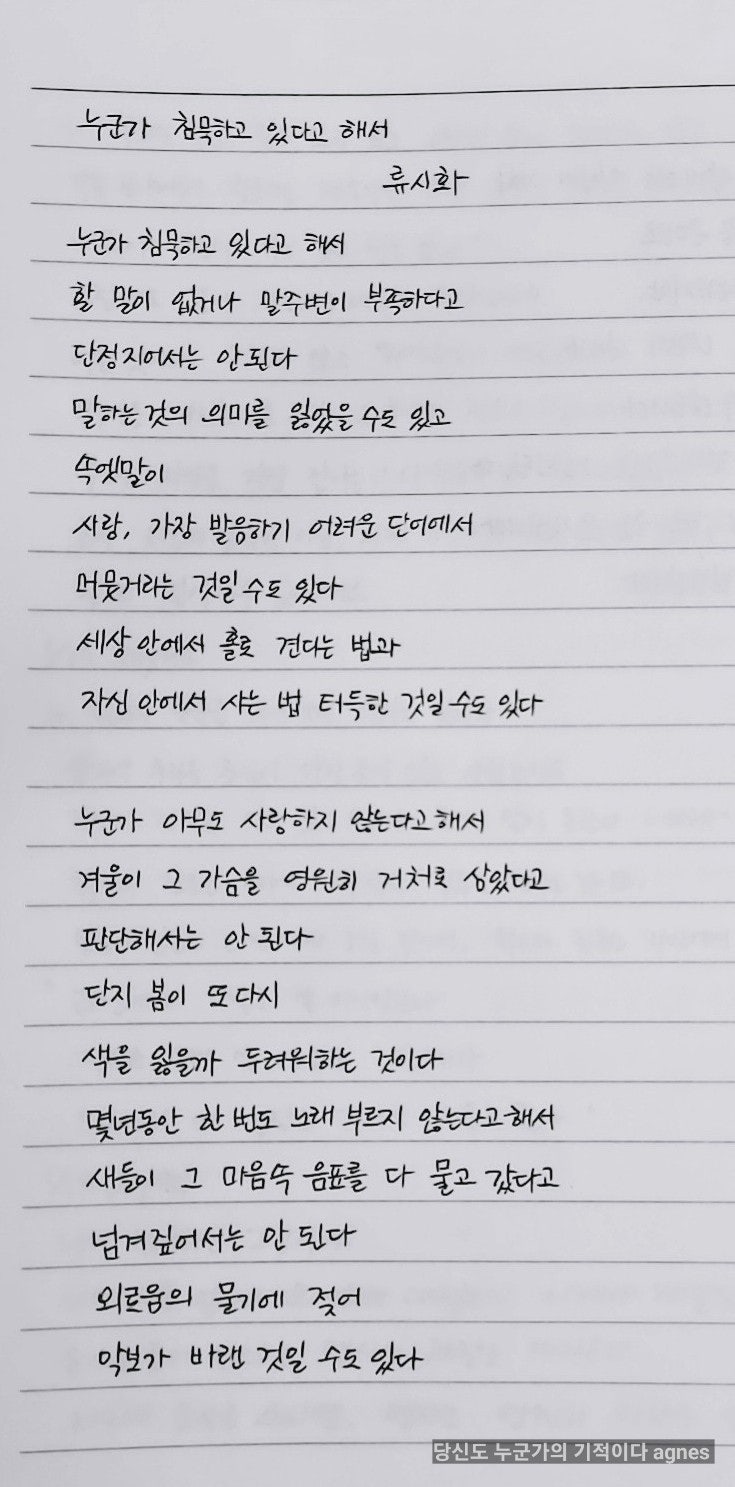 누군가 침묵하고 있다고 해서
류시화
누군가 침묵하고 있다고 해서
할 말이 없거나 말주변이 부족하다고
단정지어서는 안된다
말하는 것의 의미를 잃었을 수도 있고
속엣말이
사랑, 가장 발음하기 어려운 단어에서
머뭇거리는 것일 수도 있다
세상 안에서 홀로 견디는 법과
자신 안에서 사는 법 터득한 것일 수도 있다
누군가 아무도 사랑하지 않는다고 해서
겨울이 그 가슴을 영원히 거처로 삼았다고
판단해서는 안 된다
단지 봄이 또 다시
색을 잃을까 두려워하는 것이다
몇년동안 한 번도 노래 부르지 않는다고 해서
새들이 그 마음속 음표를 다 물고 갔다고
넘겨짚어서는 안 된다
외로움의 물기에 젖어
악보가 바랜 것일 수도 있다
당신도 누군가의 기적이다 agnes